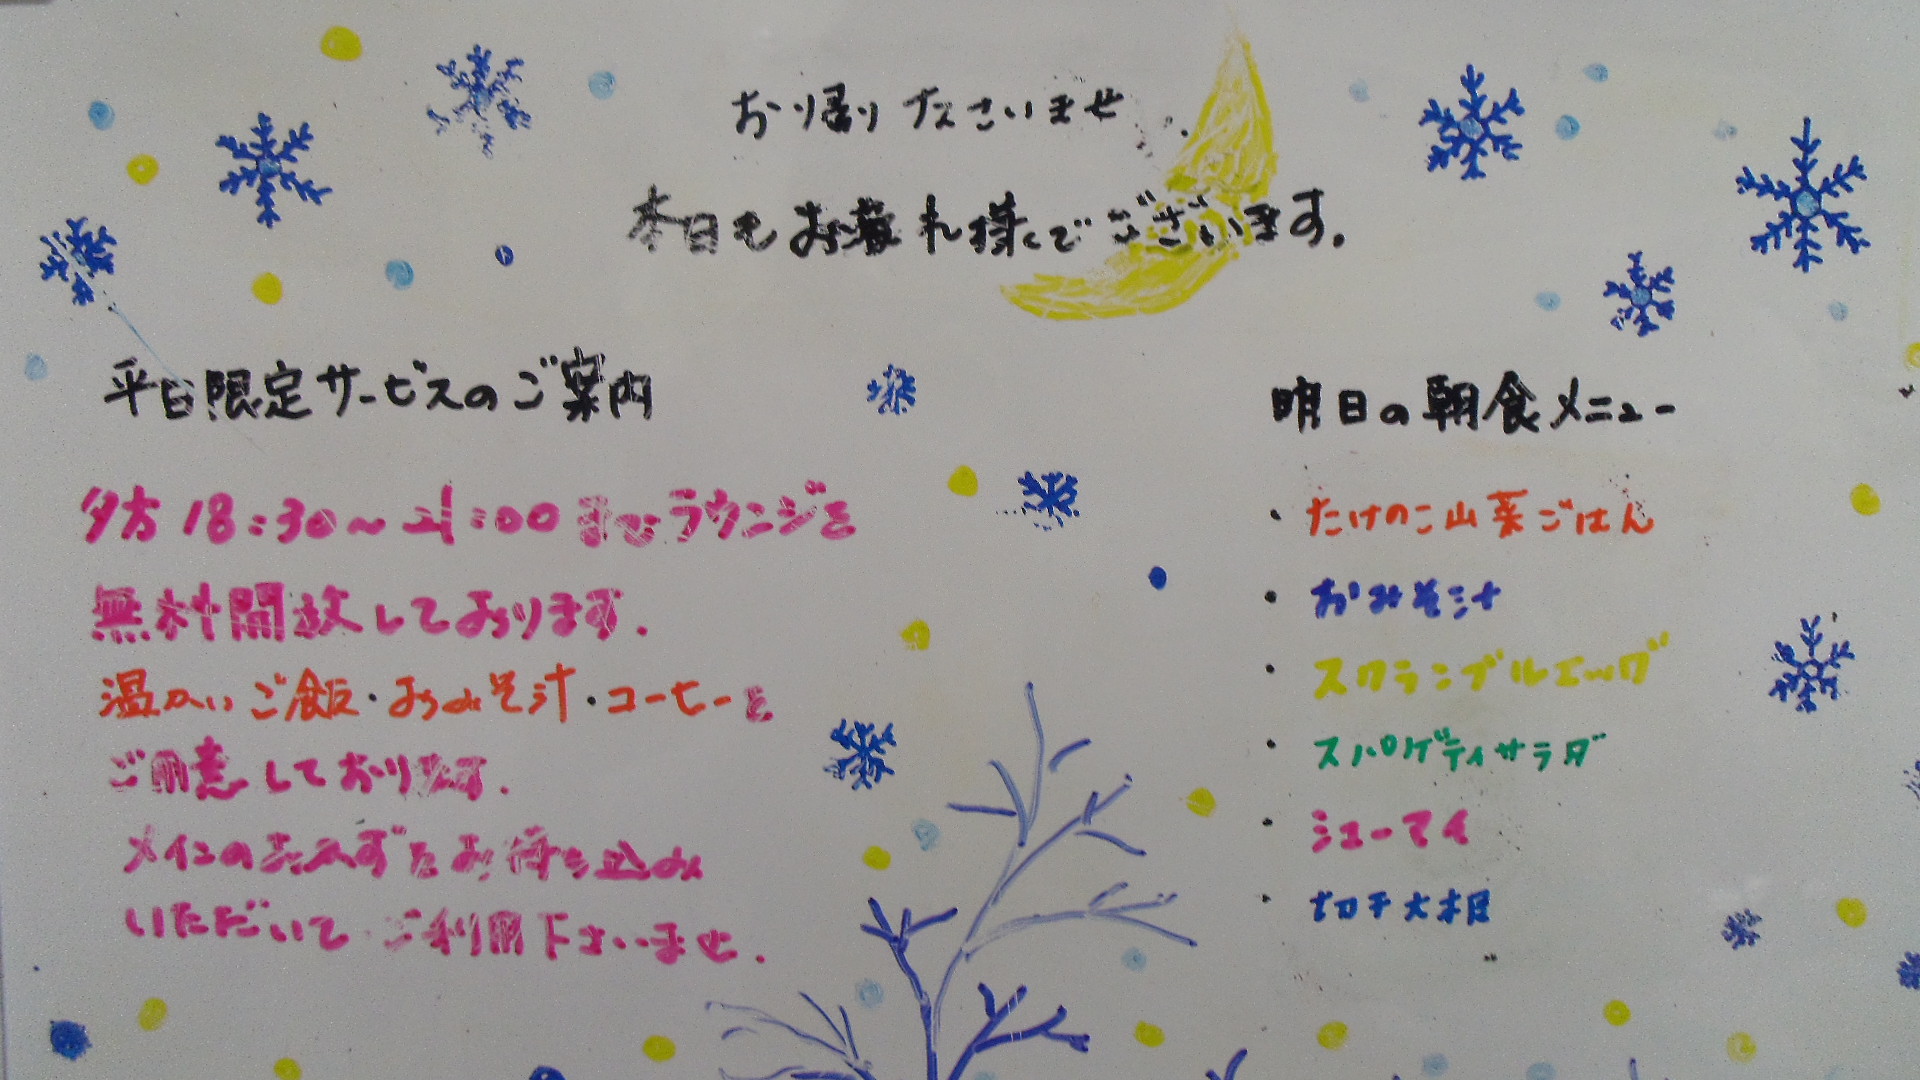 お帰りなさいませ
本日もお疲れ様でございます.
平日限定サービスのご案内
夕方 18:30〜21:00 までラウンジを
無料開放しております.
温かいご飯・おみそ汁・コーヒーを
ご用意しております.
メインのおかずをお持ち込み
いただいてご利用下さいませ.
明日の朝食メニュー
・たけのこ山菜ごはん
・おみそ汁
・スクランブルエッグ
・スパゲティサラダ
・シューマイ
・切干大根